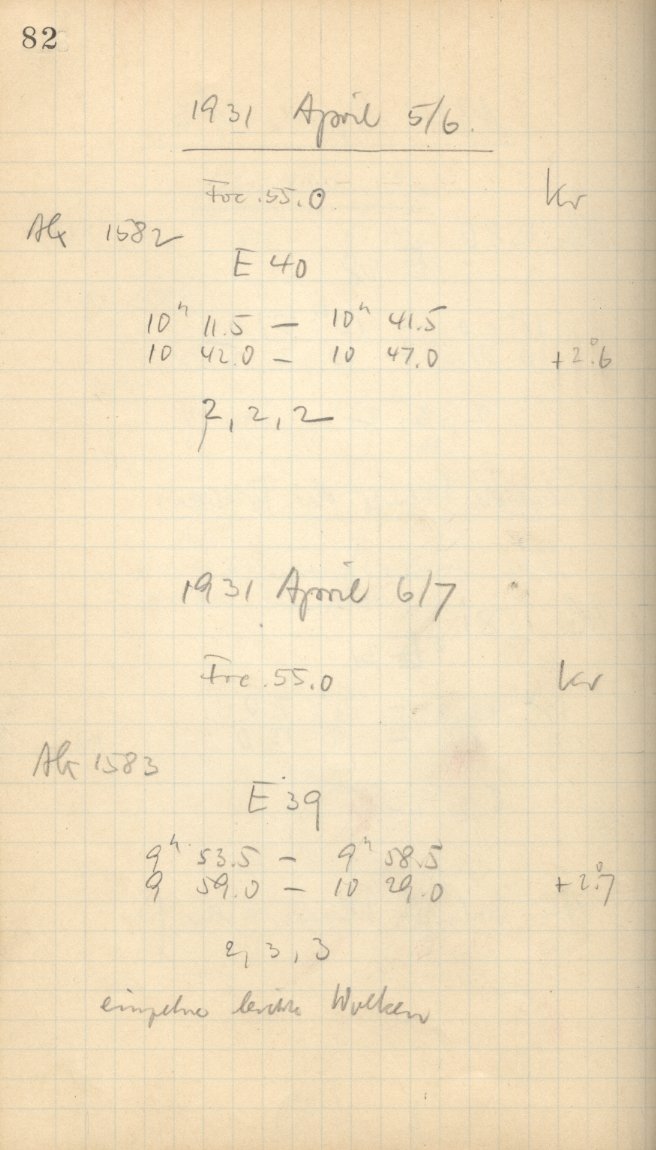 82
1931 April 5/6.
Foc. 55.0 Kr
1582
E 40
10ʰ 11.5 — 10ʰ 41.5
10 42.0 — 10 47.0 +2°.6
2, 2, 2
1931 April 6/7
Foc. 55.0 Kr
1583
E 39
9ʰ 53.5 — 9ʰ 58.5
9 59.0 — 10 29.0 +2°.7
2, 3, 3
einzelne leichte Wolken